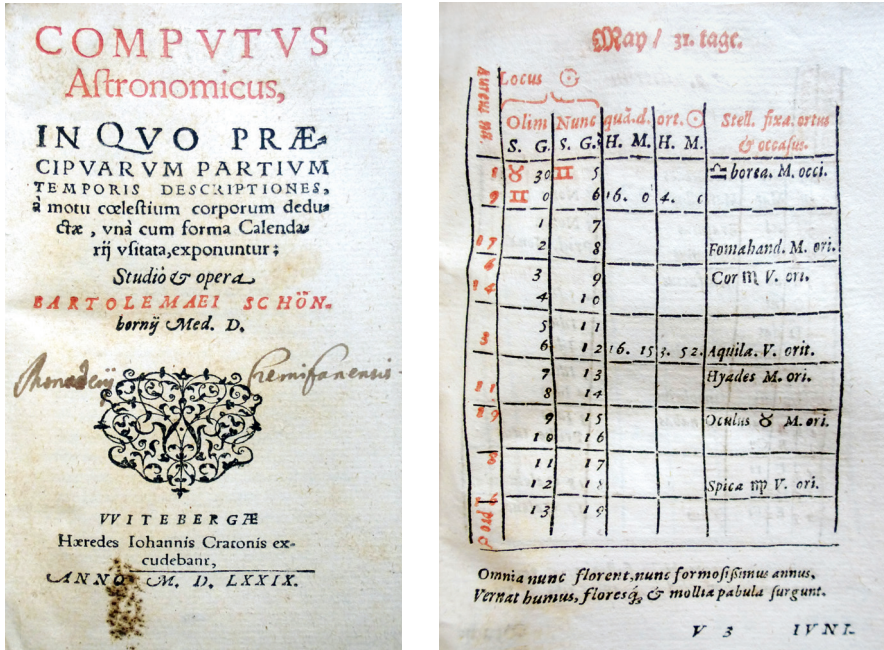 COMPVTVS
Aſtronomicus,
IN QVO PRÆ-
CIPVARVM PARTIVM
TEMPORIS DESCRIPTIONES,
à motu cœleſtium corporum dedu-
ctæ, vnà cum forma Calenda-
rij vſitata, exponuntur;
Studiò & opera
BARTOLEMAEI SCHÖN-
bornÿ Med. D.
Cremifanensis
VVITEBERGÆ
Hæredes Iohannis Cratonis ex-
cudebant,
ANNO M. D. LXXIX.
May / 31. tage.
Locus ☉
Olim Nunc quã.d. ort.☉ Stell. fixa. ortus
S. G. S. G. H. M. H. M. & occaſus.
8 ♉ 30 ♊ 5 ♎ borea. M. occi.
9 ♊ 0 6 16. 0 4. 0
1 7
2 8 Fomahand. M. ori.
6 3 9 Cor ♏ V. ori.
14 4 10
5 11
3 6 12 16. 15 3. 52. Aquila. V. orit.
7 13 Hyades M. ori.
11 8 14
19 9 15 Oculus ♉ M. ori.
10 16
8 11 17
12 18 Spica ♍ V. ori.
13 19
Omnia nunc florent, nunc formoſiſſimus annus,
Vernat humus, floresq́; & mollia pabula ſurgunt.
V 3 IVNI-